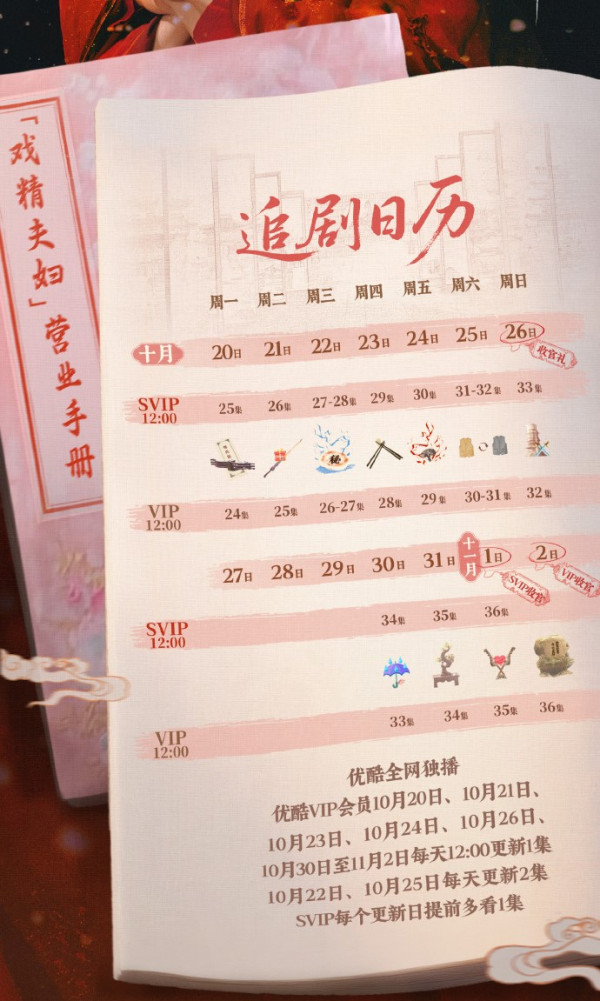 「戏精夫妇」营业手册
追剧日历
周一 周二 周三 周四 周五 周六 周日
十月 20日 21日 22日 23日 24日 25日 26日
收官礼
SVIP 12:00 25集 26集 27-28集 29集 30集 31-32集 33集
VIP 12:00 24集 25集 26-27集 28集 29集 30-31集 32集
27日 28日 29日 30日 31日 十一月 1日 2日
SVIP收官 VIP收官
SVIP 12:00 34集 35集 36集
VIP 12:00 33集 34集 35集 36集
优酷全网独播
优酷VIP会员10月20日、10月21日、
10月23日、10月24日、10月26日、
10月30日至11月2日每天12:00更新1集
10月22日、10月25日每天更新2集
SVIP每个更新日提前多看1集